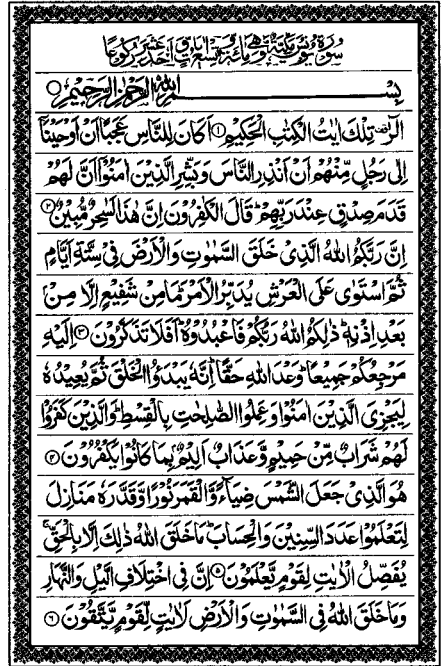 سورة يونس مكية وهي مائة وتسع اية واحد عشر ركوعا
بسم الله الرحمن الرحيم
الٓرٰ تِلْكَ اٰيٰتُ الْكِتٰبِ الْحَكِيْمِ ۝۱ اَكَانَ لِلنَّاسِ عَجَبًا اَنْ اَوْحَيْنَاۤ
اِلٰى رَجُلٍ مِّنْهُمْ اَنْ اَنْذِرِ النَّاسَ وَبَشِّرِ الَّذِيْنَ اٰمَنُوْۤا اَنَّ لَهُمْ
قَدَمَ صِدْقٍ عِنْدَ رَبِّهِمْ ؕ قَالَ الْكٰفِرُوْنَ اِنَّ هٰذَا لَسٰحِرٌ مُّبِيْنٌ ۝۲
اِنَّ رَبَّكُمُ اللّٰهُ الَّذِيْ خَلَقَ السَّمٰوٰتِ وَالْاَرْضَ فِيْ سِتَّةِ اَيَّامٍ
ثُمَّ اسْتَوٰى عَلَى الْعَرْشِ يُدَبِّرُ الْاَمْرَ ؕ مَا مِنْ شَفِيْعٍ اِلَّا مِنْۢ
بَعْدِ اِذْنِهٖ ؕ ذٰلِكُمُ اللّٰهُ رَبُّكُمْ فَاعْبُدُوْهُ ؕ اَفَلَا تَذَكَّرُوْنَ ۝۳ اِلَيْهِ
مَرْجِعُكُمْ جَمِيْعًا ؕ وَعْدَ اللّٰهِ حَقًّا ؕ اِنَّهٗ يَبْدَؤُا الْخَلْقَ ثُمَّ يُعِيْدُهٗ
لِيَجْزِيَ الَّذِيْنَ اٰمَنُوْا وَعَمِلُوا الصّٰلِحٰتِ بِالْقِسْطِ ؕ وَالَّذِيْنَ كَفَرُوْا
لَهُمْ شَرَابٌ مِّنْ حَمِيْمٍ وَّعَذَابٌ اَلِيْمٌۢ بِمَا كَانُوْا يَكْفُرُوْنَ ۝۴
هُوَ الَّذِيْ جَعَلَ الشَّمْسَ ضِيَآءً وَّالْقَمَرَ نُوْرًا وَّقَدَّرَهٗ مَنَازِلَ
لِتَعْلَمُوْا عَدَدَ السِّنِيْنَ وَالْحِسَابَ ؕ مَا خَلَقَ اللّٰهُ ذٰلِكَ اِلَّا بِالْحَقِّ ۚ
يُفَصِّلُ الْاٰيٰتِ لِقَوْمٍ يَّعْلَمُوْنَ ۝۵ اِنَّ فِي اخْتِلَافِ الَّيْلِ وَالنَّهَارِ
وَمَا خَلَقَ اللّٰهُ فِي السَّمٰوٰتِ وَالْاَرْضِ لَاٰيٰتٍ لِّقَوْمٍ يَّتَّقُوْنَ ۝۶